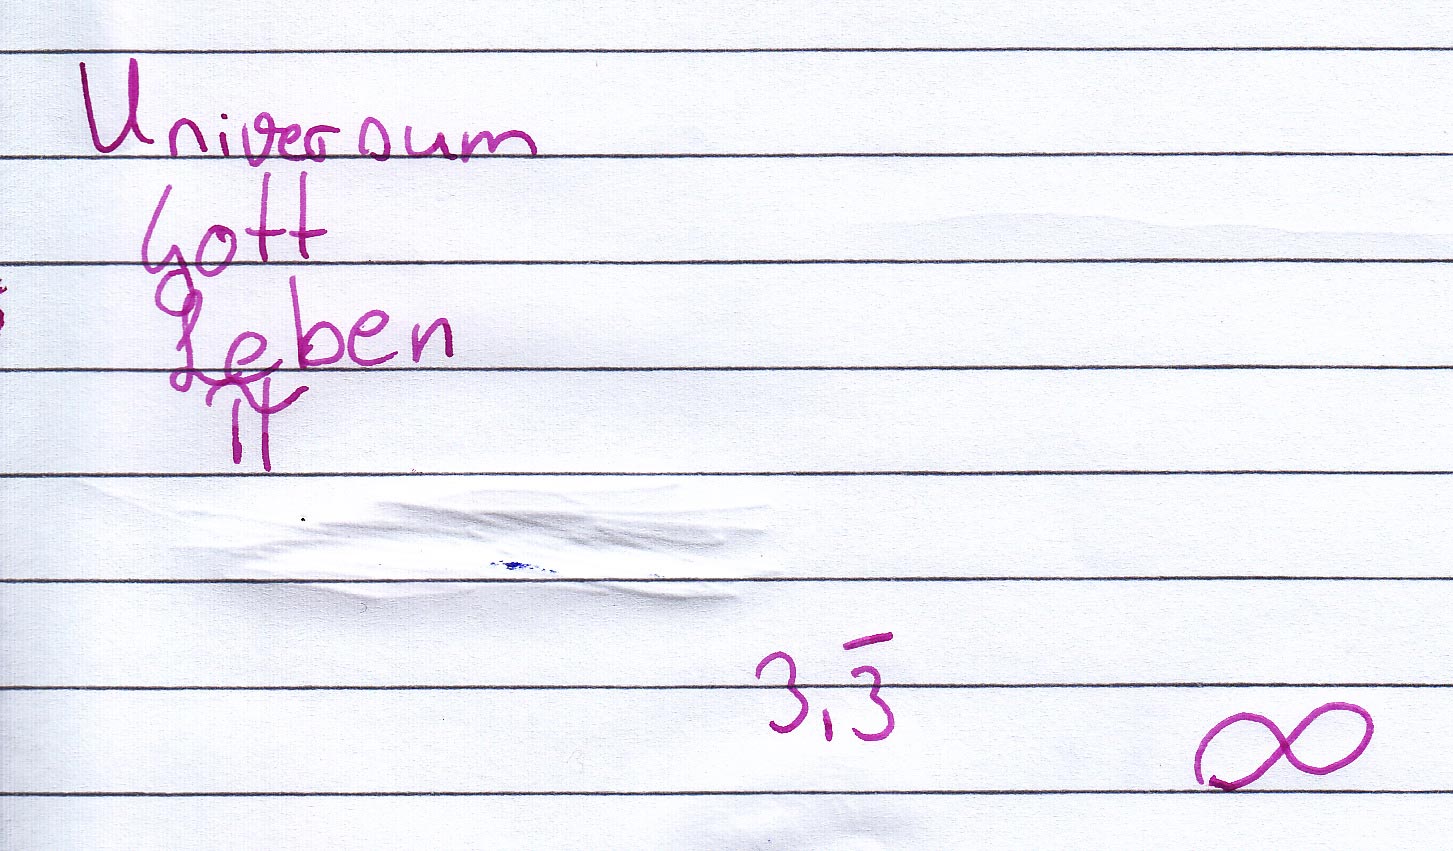 Universum
Gott
Leben
π
3,3̅
∞